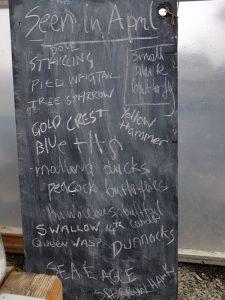 Seen in April
DOVE
STARLING
PIED WAGTAIL
TREE SPARROW
small
butterfly
GOLD CREST
Yellow
Hammer
Blue tits
mallard ducks
peacock butterflies
SWALLOW
QUEEN WASP
DUNNOCKS
SEA EAGLE